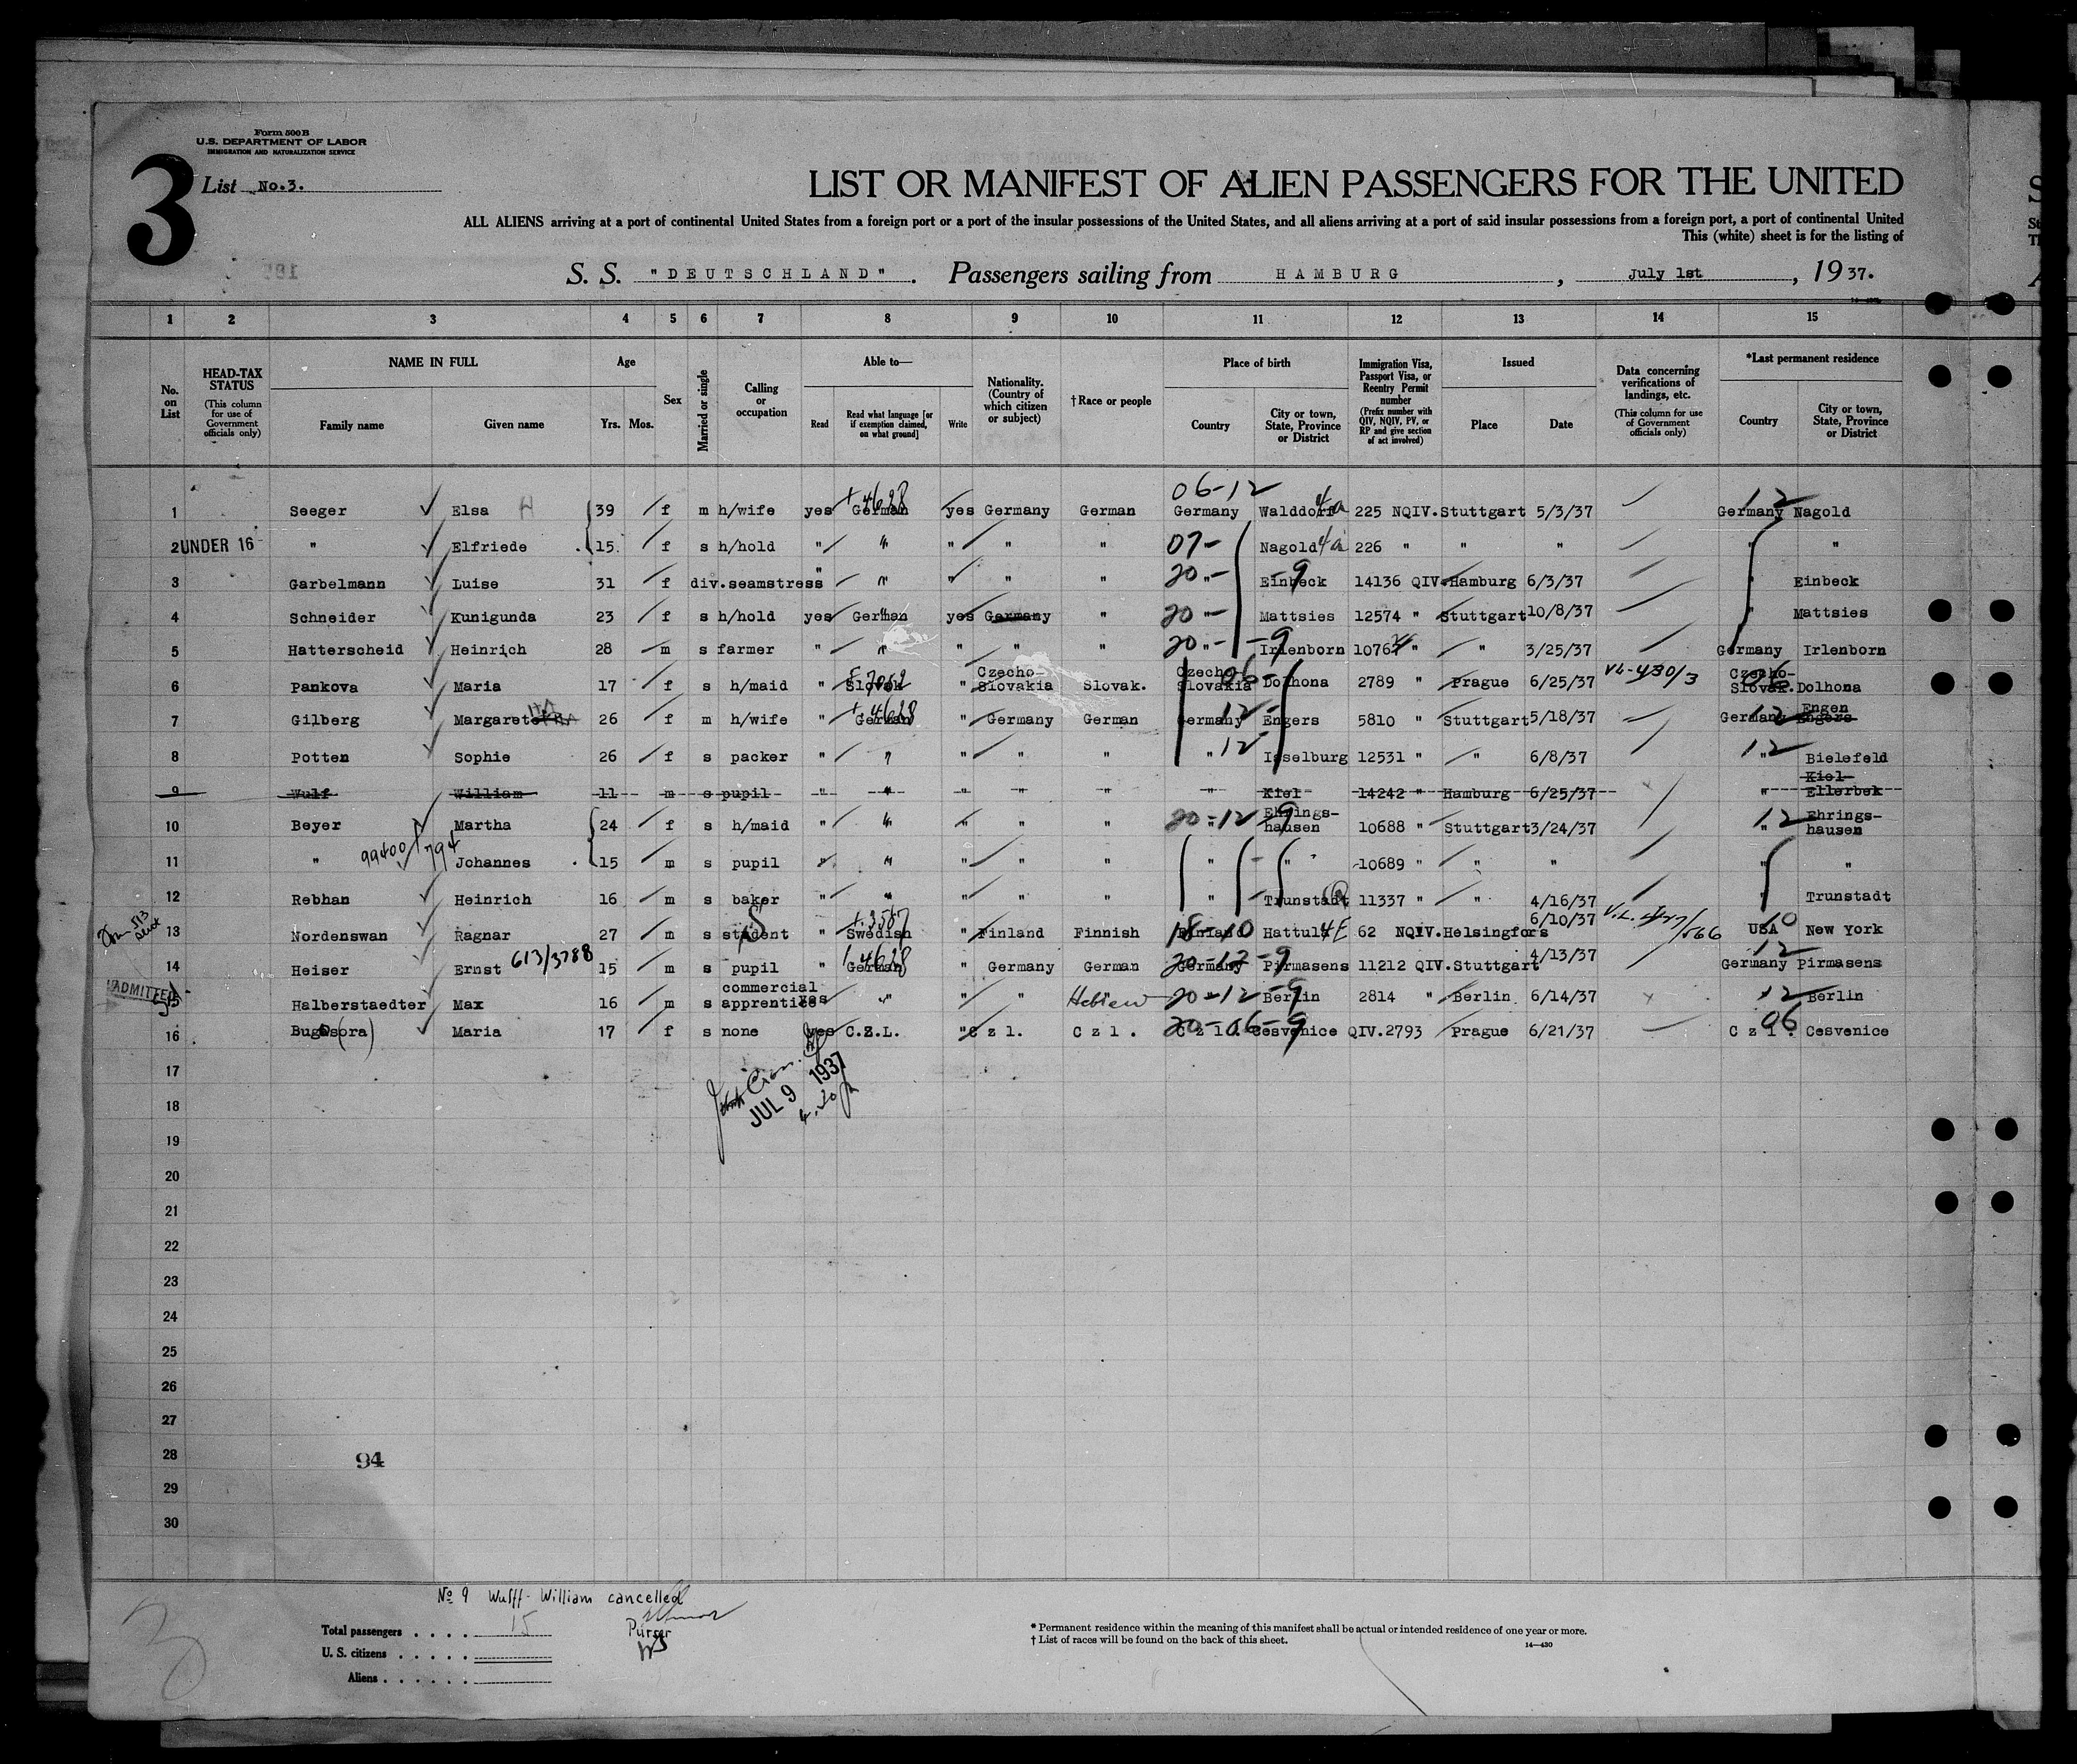 Form 500 B
U.S. DEPARTMENT OF LABOR
IMMIGRATION AND NATURALIZATION SERVICE
3
List No.3.
LIST OR MANIFEST OF ALIEN PASSENGERS FOR THE UNITED
ALL ALIENS arriving at a port of continental United States from a foreign port or a port of the insular possessions of the United States, and all aliens arriving at a port of said insular possessions from a foreign port, a port of continental United
This (white) sheet is for the listing of
S. S. "DEUTSCHLAND". Passengers sailing from HAMBURG, July 1st, 1937.
1 2 3 4 5 6 7 8 9 10 11 12 13 14 15
No. on List
HEAD-TAX STATUS (This column for use of Government officials only)
NAME IN FULL Family name Given name
Age Yrs. Mos.
Sex
Married or single
Calling or occupation
Able to— Read Read what language [or if exemption claimed, on what ground] Write
Nationality. (Country of which citizen or subject)
†Race or people
Place of birth Country City or town, State, Province or District
Immigration Visa, Passport Visa, or Reentry Permit number (Prefix number with QIV, NQIV, PV, or RP and give section of act involved)
Issued Place Date
Data concerning verifications of landings, etc. (This column for use of Government officials only)
*Last permanent residence Country City or town, State, Province or District
06-12
1 Seeger Elsa 39 f m h/wife yes German yes Germany German Germany Walddorf 225 NQIV. Stuttgart 5/3/37 12 Germany Nagold
2 UNDER 16 " Elfriede 15 f s h/hold " " " " " 07- Nagold 226 " " " " "
3 Garbelmann Luise 31 f div. seamstress " " " " " 20- " Einbeck -9 14136 QIV. Hamburg 6/3/37 " Einbeck
4 Schneider Kunigunda 23 f s h/hold yes German yes Germany " 20 " Mattsies 12574 " Stuttgart 10/8/37 " Mattsies
5 Hatterscheid Heinrich 28 m s farmer " " " " " 20 " -9 Irlenborn 10767 " " 3/25/37 Germany Irlenborn
6 Pankova Maria 17 f s h/maid " Slovak " Czecho-Slovakia Slovak. Czecho-Slovakia 06- Dolhona 2789 " Prague 6/25/37 VL-430/3 Czecho-Slovak. 06 Dolhona
7 Gilberg Margarete 26 f m h/wife " German " Germany German Germany 12- Engers 5810 " Stuttgart 5/18/37 Germany 12 Engers Engen
8 Potten Sophie 26 f s packer " " " " " " 12- Isselburg 12531 " " 6/8/37 12 " Bielefeld
9 Wulf William 11 m s pupil " " " " " " Kiel 14242 " Hamburg 6/25/37 " Kiel-Ellerbek
10 Beyer Martha 24 f s h/maid " " " " " 20-12-9 " Ehrings-hausen 10688 " Stuttgart 3/24/37 12 " Ehrings-hausen
11 " 99400/794 Johannes 15 m s pupil " " " " " " " 10689 " " " " "
12 Rebhan Heinrich 16 m s baker " " " " " " Trunstadt 11337 " " 4/16/37 " Trunstadt
13 Nordenswan Ragnar 27 m s student " Swedish " Finland Finnish Finland 18-10 Hattula 4E 62 NQIV. Helsingfors 6/10/37 USA 10 New York
14 Heiser Ernst 613/3788 15 m s pupil " German " Germany German Germany 20-12-9 Pirmasens 11212 QIV. Stuttgart 4/13/37 12 Germany Pirmasens
ADMITTED
15 Halberstaedter Max 16 m s commercial apprentice yes " " " Hebrew 20-12-9 Berlin 2814 " Berlin 6/14/37 12 Berlin
16 Bugosora Maria 17 f s none yes C.Z.L. " Czl. Czl. Czl. 20-06-9 Cesvenice QIV.2793 Prague 6/21/37 Czl. 06 Cesvenice
JUL 9 1937
17
18
19
20
21
22
23
24
25
26
27
28
94
29
30
No 9 Wulff-William cancelled
Purser
Total passengers . . . . 15
U. S. citizens . . . . .
Aliens . . . . . .
* Permanent residence within the meaning of this manifest shall be actual or intended residence of one year or more.
† List of races will be found on the back of this sheet.
14—430
3